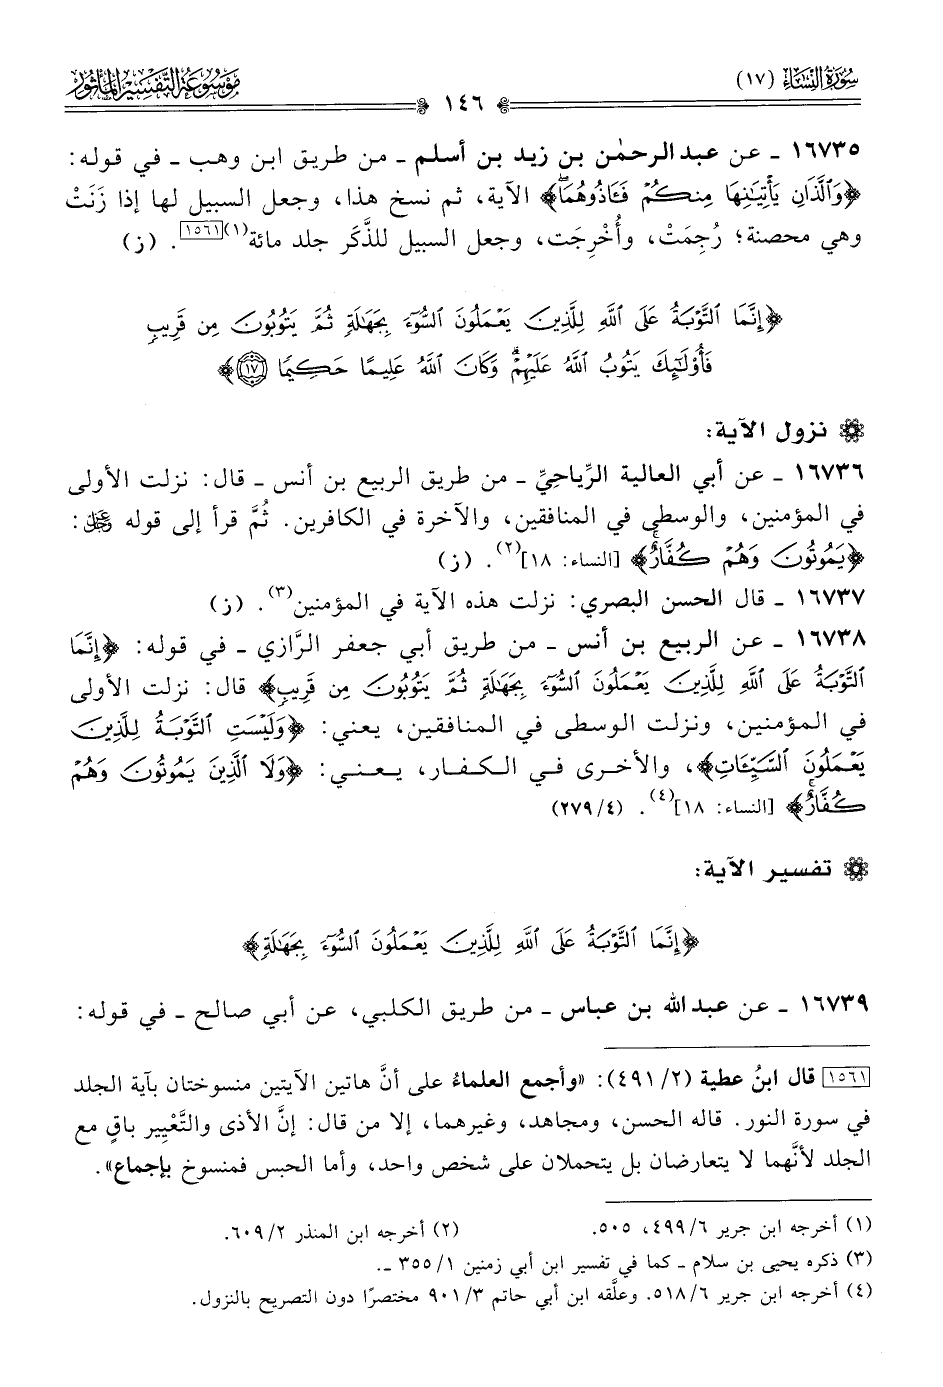 سُورَةُ النِّسَاءِ (١٧)
١٤٦
مَوْسُوعَة التَّفْسِيْر المَأْثُور
١٦٧٣٥ ـ عن عبد الرحمٰن بن زيد بن أسلم ـ من طريق ابن وهب ـ في قوله:
﴿وَٱلَّذَانِ يَأْتِيَٰنِهَا مِنكُمْ فَـَٔاذُوهُمَاۖ﴾ الآية، ثم نسخ هذا، وجعل السبيل لها إذا زَنَتْ
وهي محصنة؛ رُجِمَتْ، وأُخْرِجَت، وجعل السبيل للذَّكَر جلد مائة(١)[١٥٦١]. (ز)
﴿إِنَّمَا ٱلتَّوْبَةُ عَلَى ٱللَّهِ لِلَّذِينَ يَعْمَلُونَ ٱلسُّوٓءَ بِجَهَٰلَةٍ ثُمَّ يَتُوبُونَ مِن قَرِيبٍ
فَأُو۟لَٰٓئِكَ يَتُوبُ ٱللَّهُ عَلَيْهِمْۗ وَكَانَ ٱللَّهُ عَلِيمًا حَكِيمًا ١٧﴾
نزول الآية:
١٦٧٣٦ ـ عن أبي العالية الرِّياحيِّ ـ من طريق الربيع بن أنس ـ قال: نزلت الأولى
في المؤمنين، والوسطى في المنافقين، والآخرة في الكافرين. ثُمَّ قرأ إلى قوله ﷿:
﴿يَمُوتُونَ وَهُمْ كُفَّارٌۚ﴾ [النساء: ١٨](٢). (ز)
١٦٧٣٧ ـ قال الحسن البصري: نزلت هذه الآية في المؤمنين(٣). (ز)
١٦٧٣٨ ـ عن الربيع بن أنس ـ من طريق أبي جعفر الرَّازي ـ في قوله: ﴿إِنَّمَا
ٱلتَّوْبَةُ عَلَى ٱللَّهِ لِلَّذِينَ يَعْمَلُونَ ٱلسُّوٓءَ بِجَهَٰلَةٍ ثُمَّ يَتُوبُونَ مِن قَرِيبٍ﴾ قال: نزلت الأولى
في المؤمنين، ونزلت الوسطى في المنافقين، يعني: ﴿وَلَيْسَتِ ٱلتَّوْبَةُ لِلَّذِينَ
يَعْمَلُونَ ٱلسَّيِّـَٔاتِ﴾، والأخرى في الكفار، يعني: ﴿وَلَا ٱلَّذِينَ يَمُوتُونَ وَهُمْ
كُفَّارٌۚ﴾ [النساء: ١٨](٤). (٢٧٩/٤)
تفسير الآية:
﴿إِنَّمَا ٱلتَّوْبَةُ عَلَى ٱللَّهِ لِلَّذِينَ يَعْمَلُونَ ٱلسُّوٓءَ بِجَهَٰلَةٍ﴾
١٦٧٣٩ ـ عن عبد الله بن عباس ـ من طريق الكلبي، عن أبي صالح ـ في قوله:
[١٥٦١] قال ابنُ عطية (٤٩١/٢): «وأجمع العلماءُ على أنَّ هاتين الآيتين منسوختان بآية الجلد
في سورة النور. قاله الحسن، ومجاهد، وغيرهما، إلا من قال: إنَّ الأذى والتَّعْيِير باقٍ مع
الجلد لأنَّهما لا يتعارضان بل يتحملان على شخص واحد، وأما الحبس فمنسوخ بإجماع».
(١) أخرجه ابن جرير ٤٩٩/٦، ٥٠٥. (٢) أخرجه ابن المنذر ٦٠٩/٢.
(٣) ذكره يحيى بن سلام ـ كما في تفسير ابن أبي زمنين ٣٥٥/١ ـ.
(٤) أخرجه ابن جرير ٥١٨/٦. وعلَّقه ابن أبي حاتم ٩٠١/٣ مختصرًا دون التصريح بالنزول.